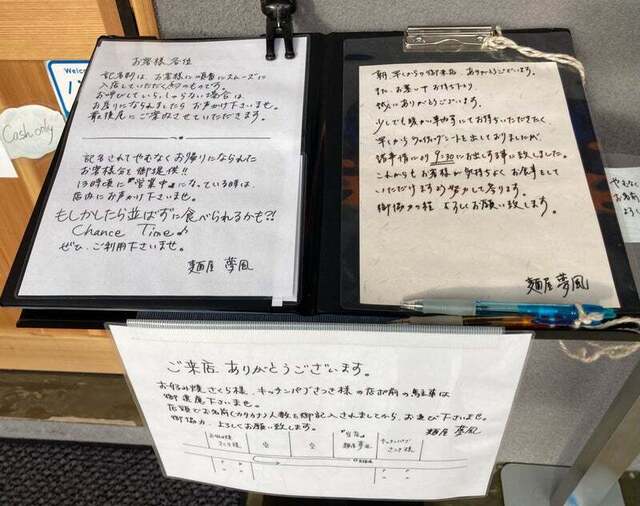 お客様各位
記名制は、お客様に順番にスムーズに
入店していただく為のものです。
お呼びしていらっしゃらない場合は、
お戻りになられましたらお声かけ下さいませ。
最後尾にご案内させていただきます。
記名されてやむなくお帰りになられた
お客様分を御提供!!
13時頃に"営業中"になっている時は、
店内にお声かけ下さいませ。
もしかしたら並ばずに食べられるかも?!
Chance Time♪
ぜひ、ご利用下さいませ。
麺屋 夢風
早くからの御来店、ありがとうございます。
また、お並びお待ち下さり
誠にありがとうございます。
少しでも暖かい車内にてお待ちいただきたく
早くからウェイティングシートを出しておりましたが、
諸事情により 9:30にお出しする事に致しました。
これからもお客様が気持ちよくお食事をして
いただけますよう努力して参ります。
御協力の程、よろしくお願い致します。
麺屋 夢風
Welc
Cash only
ご来店、ありがとうございます。
お好み焼さくら様、キッチンハブさつき様の店前の駐車は
御遠慮下さいませ。
店頭でお名前(カタカナ)人数を御記入されましてから、お並び下さいませ。
御協力、よろしくお願い致します。
麺屋 夢風
お好み焼 さくら様
空
空
当店 麺屋夢風
キッチンハブ さつき様
P P P P